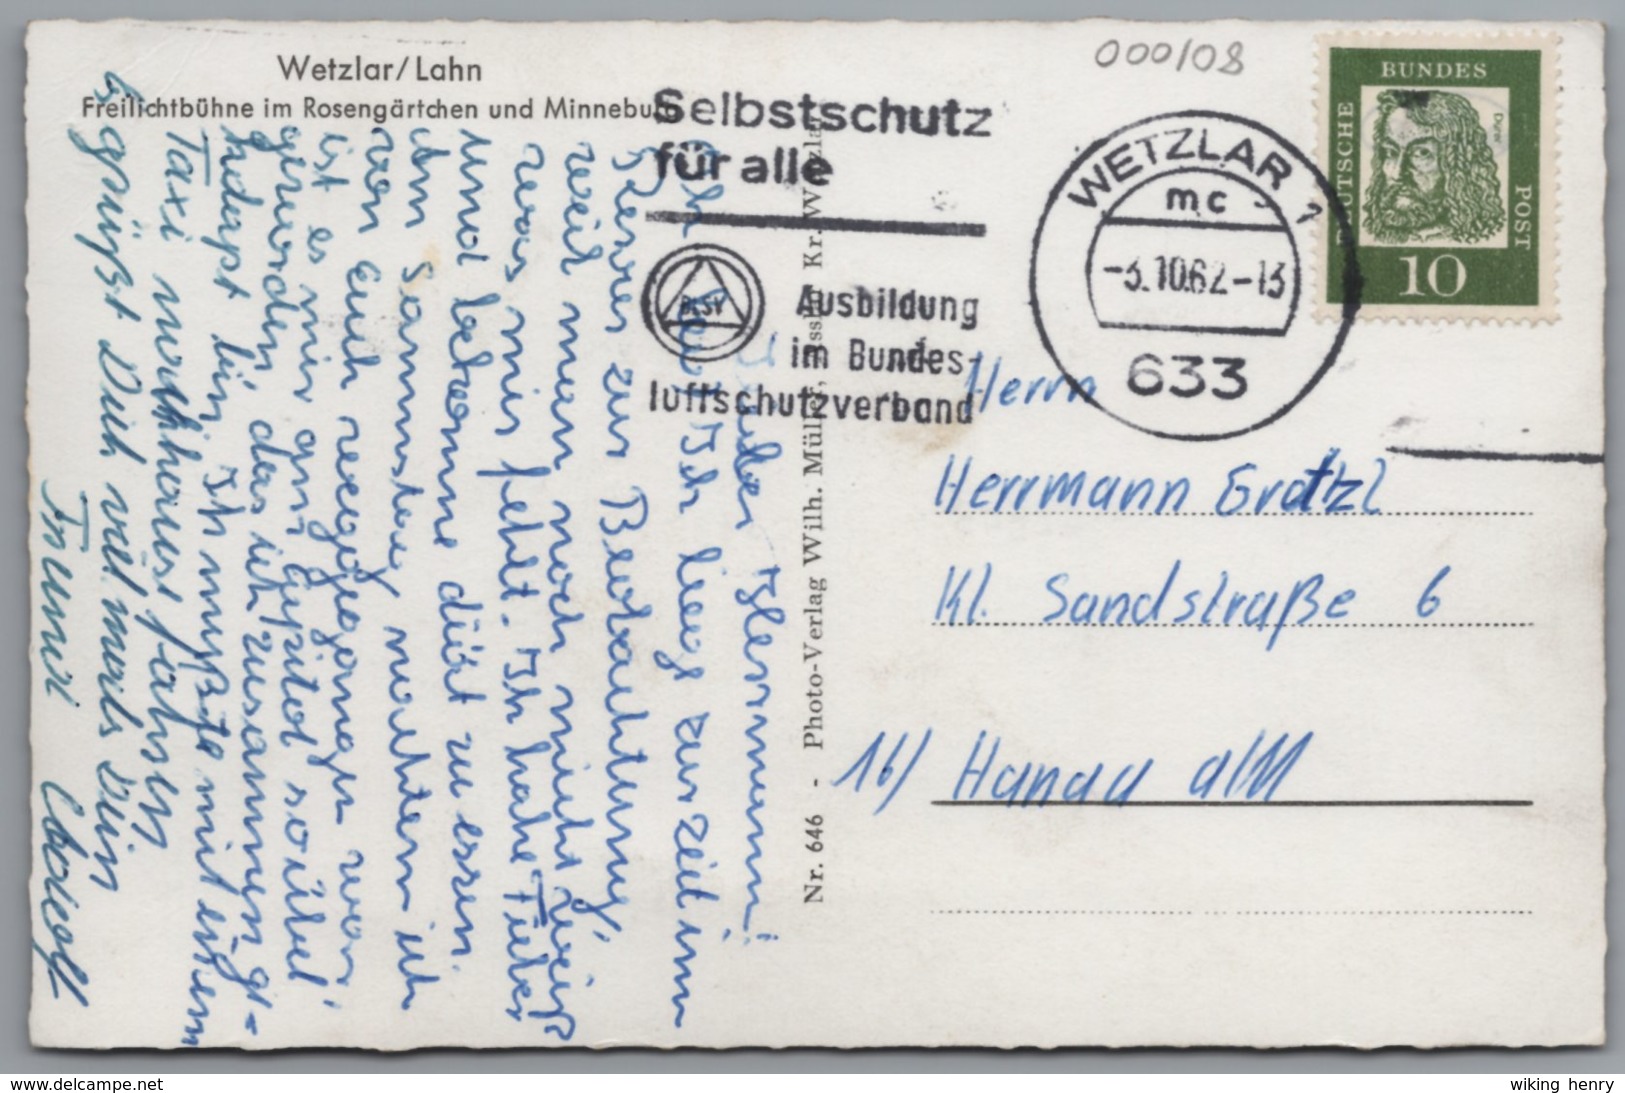 000/08
Wetzlar/Lahn
Freilichtbühne im Rosengärtchen und Minneburg
Selbstschutz
für alle
BLSV
Ausbildung
im Bundes-
luftschutzverband
WETZLAR 1
mc
-3.10.62-13
633
DEUTSCHE
BUNDES
POST
Dürer
10
Nr. 646 - Photo-Verlag Wilh. Müller, Kr. Wetzlar
Herrn
Herrmann Gratzl
Kl. Sandstraße 6
16/ Hanau a/M
Lieber Hermann!
Ich liege zur Zeit im
Revier zur Beobachtung,
weil man noch nicht weiß
was mir fehlt. Ich habe Fieber
und bekomme diät zu essen.
Am Samstag nachdem ich
von Euch weggegangen war,
ist es mir am so übel
geworden, das ich zusammenge-
klappt bin. Ich mußte mit einem
Taxi nachhause fahren
Es grüßt Dich vielmals Dein
Freund
delcampe.net
wiking henry